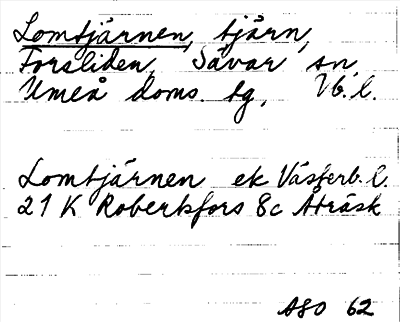 Lomtjärnen, tjärn,
Forsliden, Sävar sn,
Umeå doms. tg, Vb. l.
Lomtjärnen ek Västerb. l.
21 K Robertsfors 8c Åträsk
ASO 62